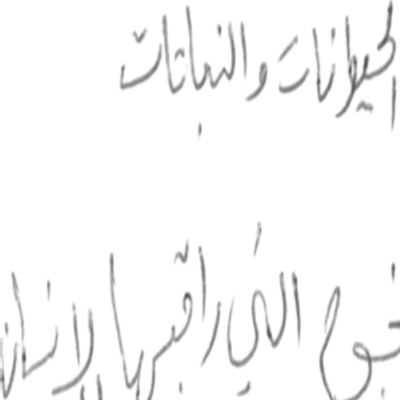 الحيوانات والنباتات
نجوم التي راقبها الانسان